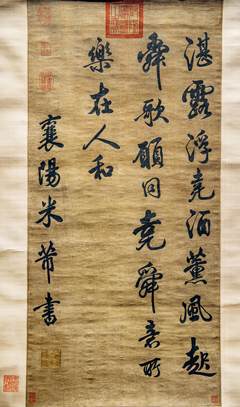 湛露浮堯酒薰風起
舜歌願同堯舜意所
樂在人和
襄陽米芾書